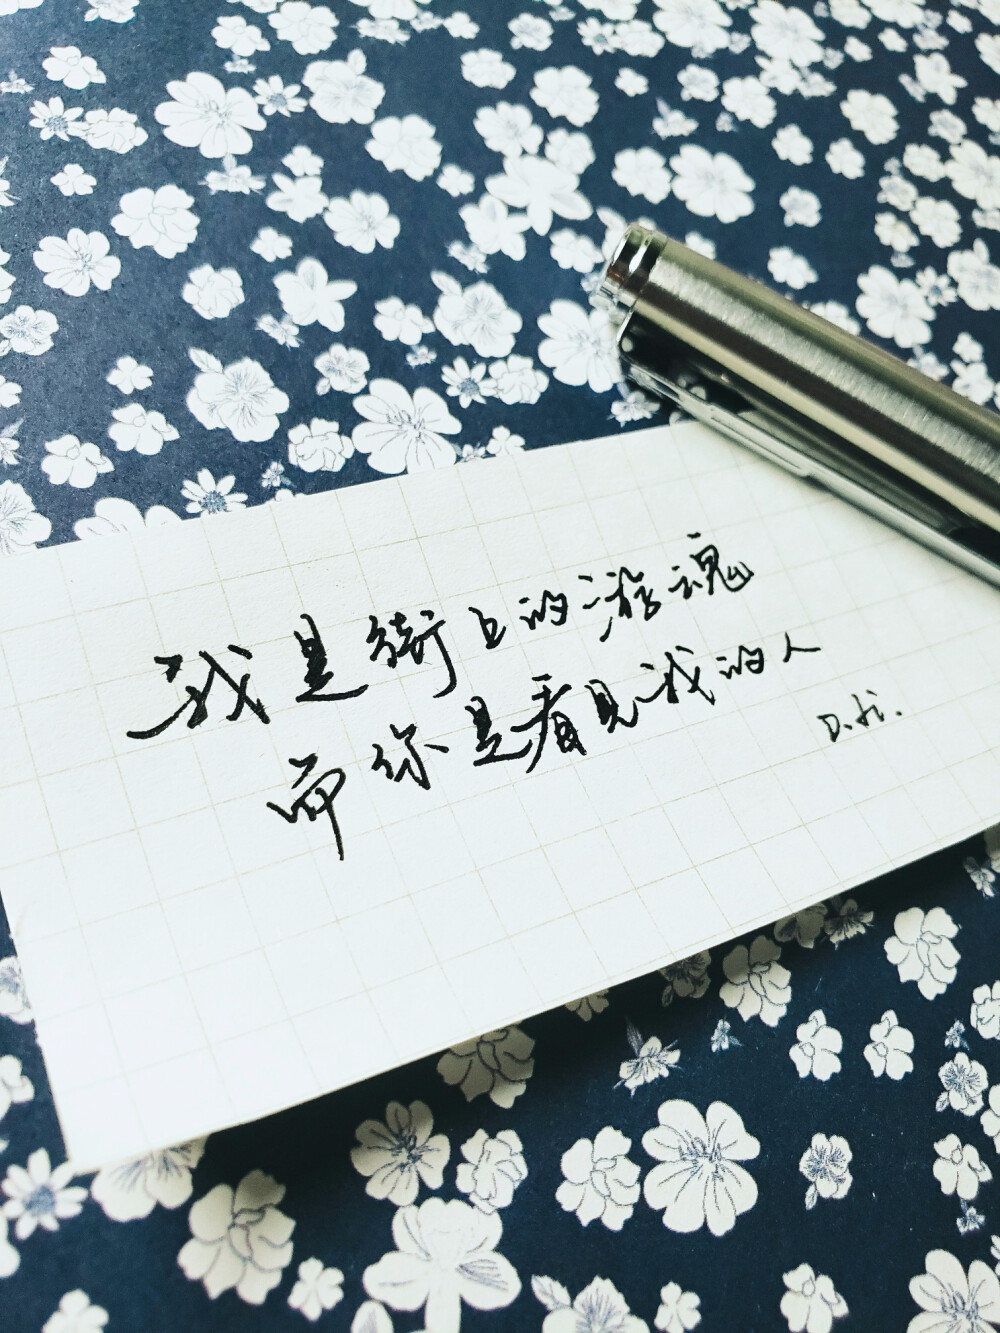 我是街上的游魂
而你是看见我的人